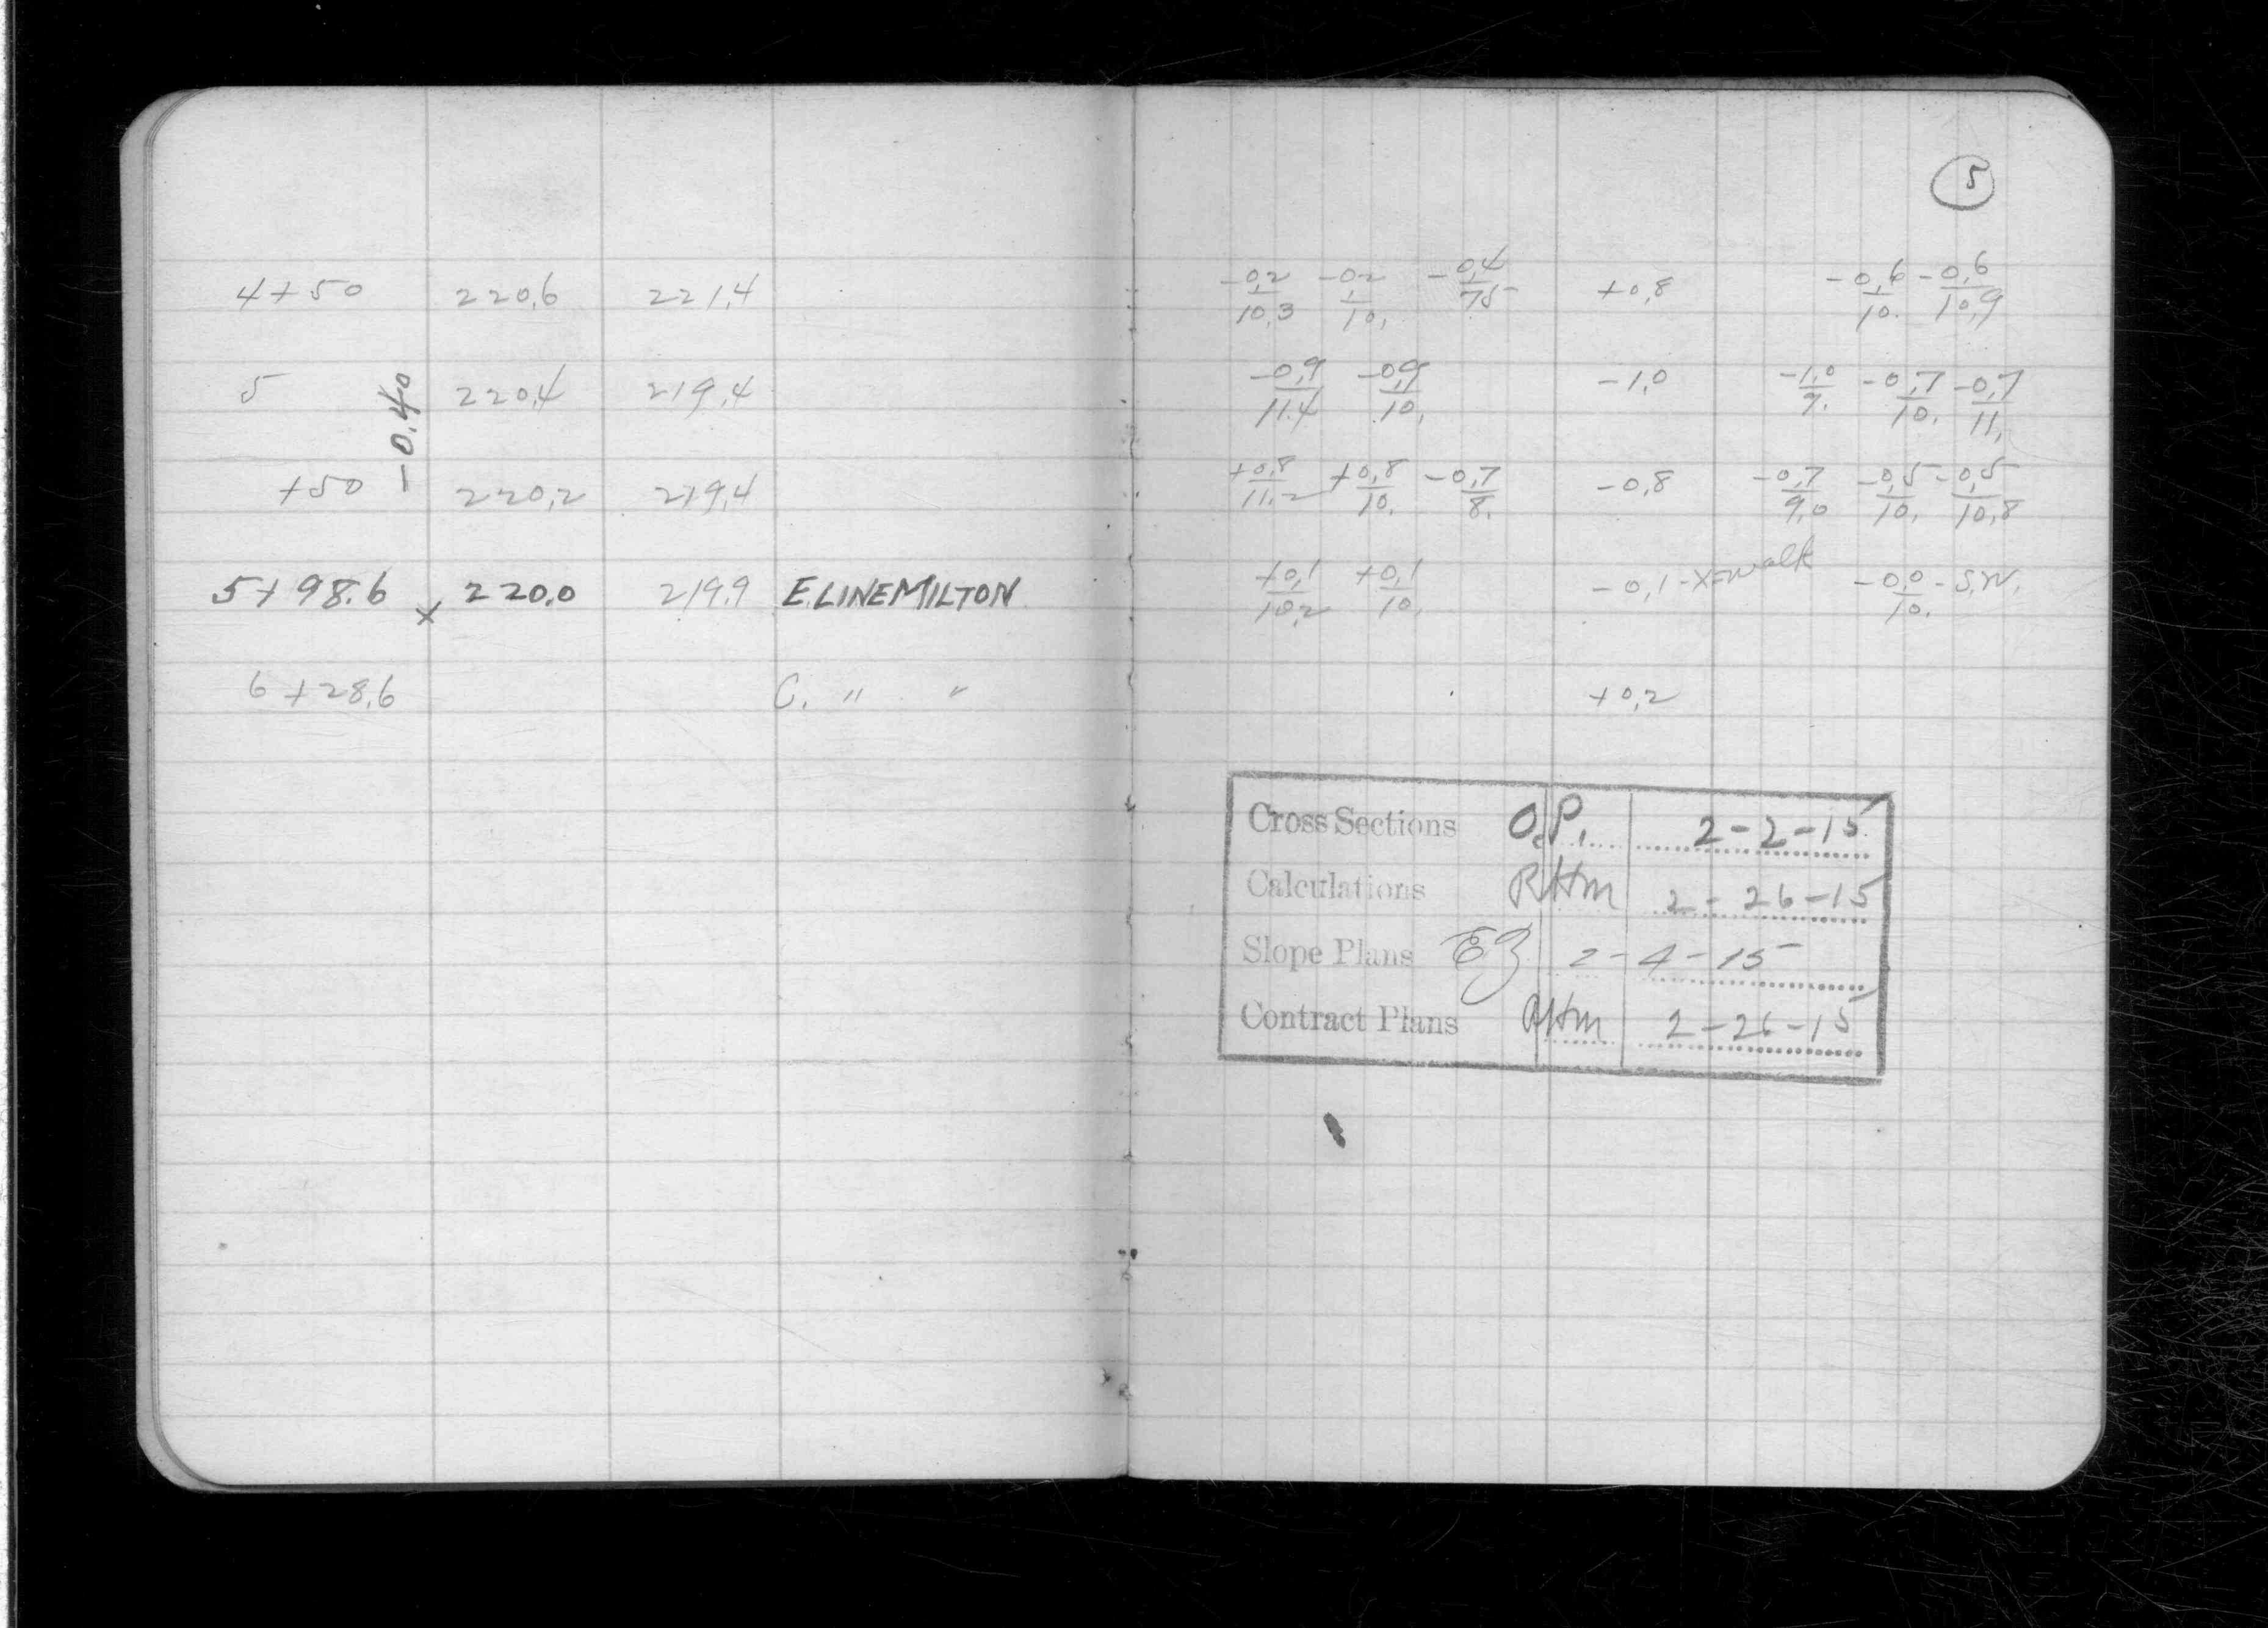 5
4+50 220.6 221.4 -0.2/10.3 -0.2/10. -0.4/7.5 +0.8 -0.6/10. -0.6/10.9
5 220.4 219.4 -0.9/11.4 -0.9/10. -1.0 -1.0/9. -0.7/10. -0.7/11.
-0.40
+50 220.2 219.4 +0.8/11.2 +0.8/10. -0.7/8. -0.8 -0.7/9.0 -0.5/10. -0.5/10.8
5+98.6 x 220.0 219.9 E.LINE MILTON +0.1/10.2 +0.1/10. -0.1-X-walk -0.0/10. -S.W.
6+28.6 C. " " +0.2
Cross Sections O.P. 2-2-15
Calculations RHM 2-26-15
Slope Plans 2-4-15
Contract Plans RHM 2-26-15